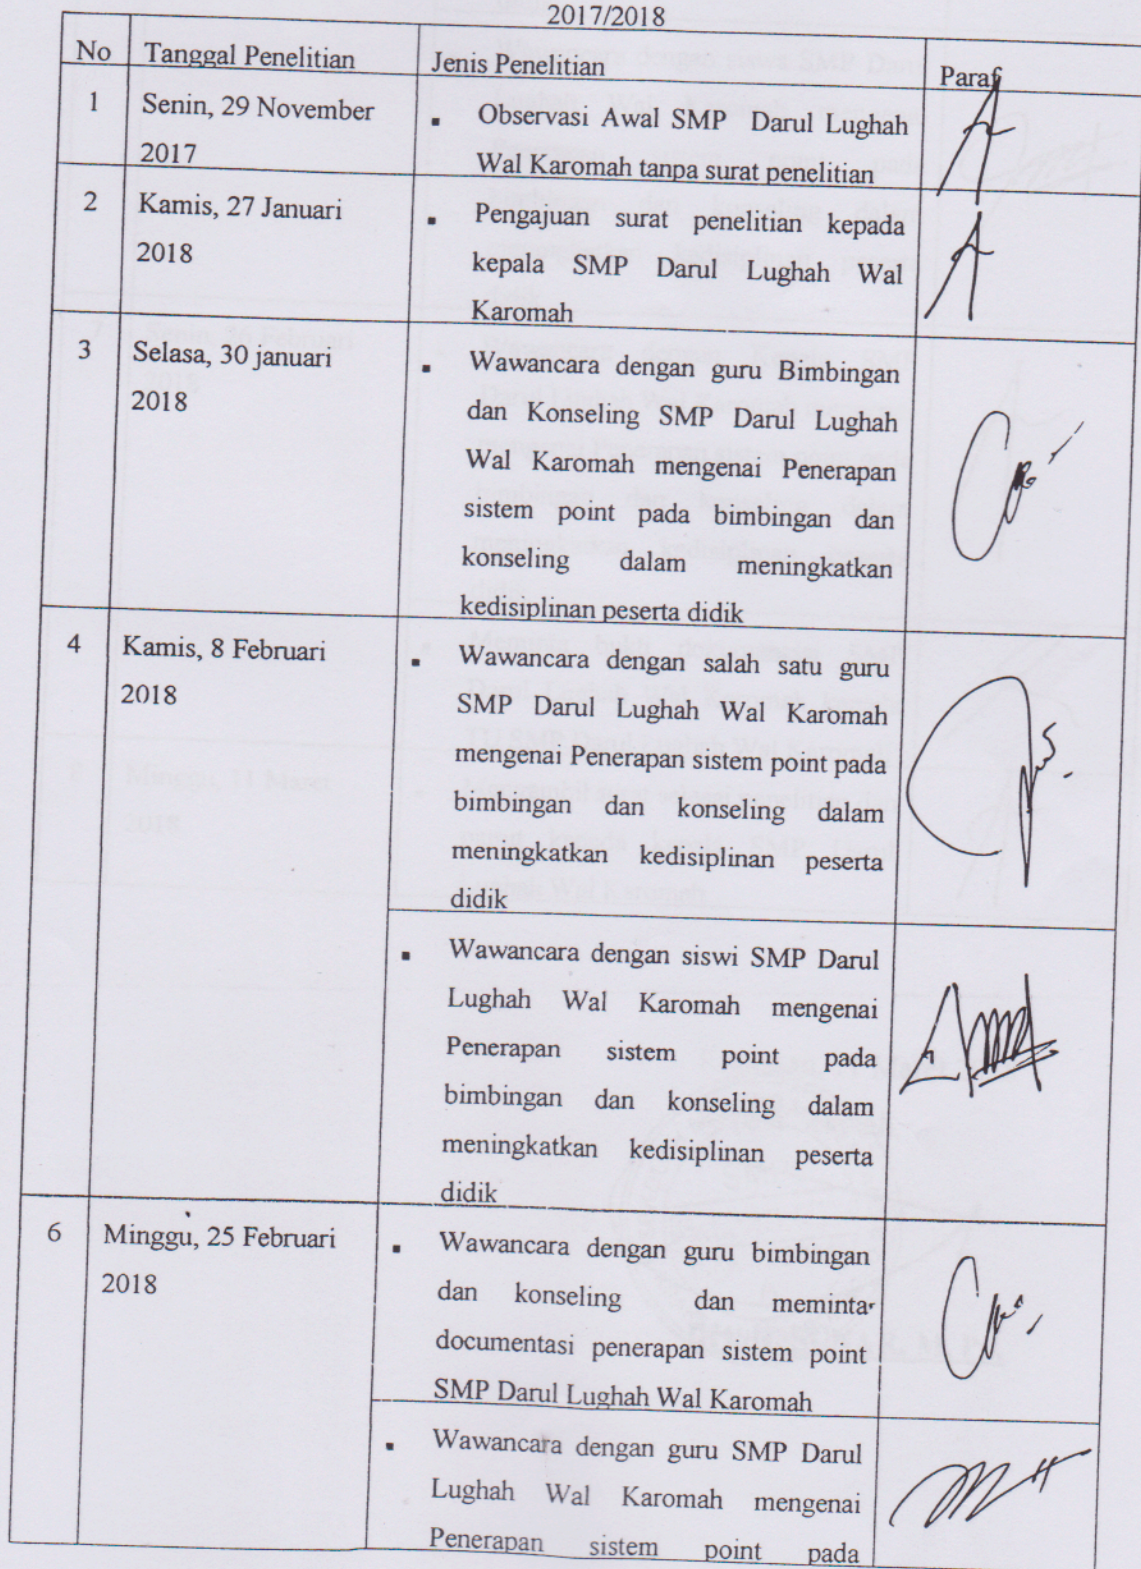 2017/2018
No Tanggal Penelitian Jenis Penelitian Paraf
1 Senin, 29 November
2017
▪ Observasi Awal SMP Darul Lughah
Wal Karomah tanpa surat penelitian
2 Kamis, 27 Januari
2018
▪ Pengajuan surat penelitian kepada
kepala SMP Darul Lughah Wal
Karomah
3 Selasa, 30 januari
2018
▪ Wawancara dengan guru Bimbingan
dan Konseling SMP Darul Lughah
Wal Karomah mengenai Penerapan
sistem point pada bimbingan dan
konseling dalam meningkatkan
kedisiplinan peserta didik
4 Kamis, 8 Februari
2018
▪ Wawancara dengan salah satu guru
SMP Darul Lughah Wal Karomah
mengenai Penerapan sistem point pada
bimbingan dan konseling dalam
meningkatkan kedisiplinan peserta
didik
▪ Wawancara dengan siswi SMP Darul
Lughah Wal Karomah mengenai
Penerapan sistem point pada
bimbingan dan konseling dalam
meningkatkan kedisiplinan peserta
didik
6 Minggu, 25 Februari
2018
▪ Wawancara dengan guru bimbingan
dan konseling dan meminta
documentasi penerapan sistem point
SMP Darul Lughah Wal Karomah
▪ Wawancara dengan guru SMP Darul
Lughah Wal Karomah mengenai
Penerapan sistem point pada